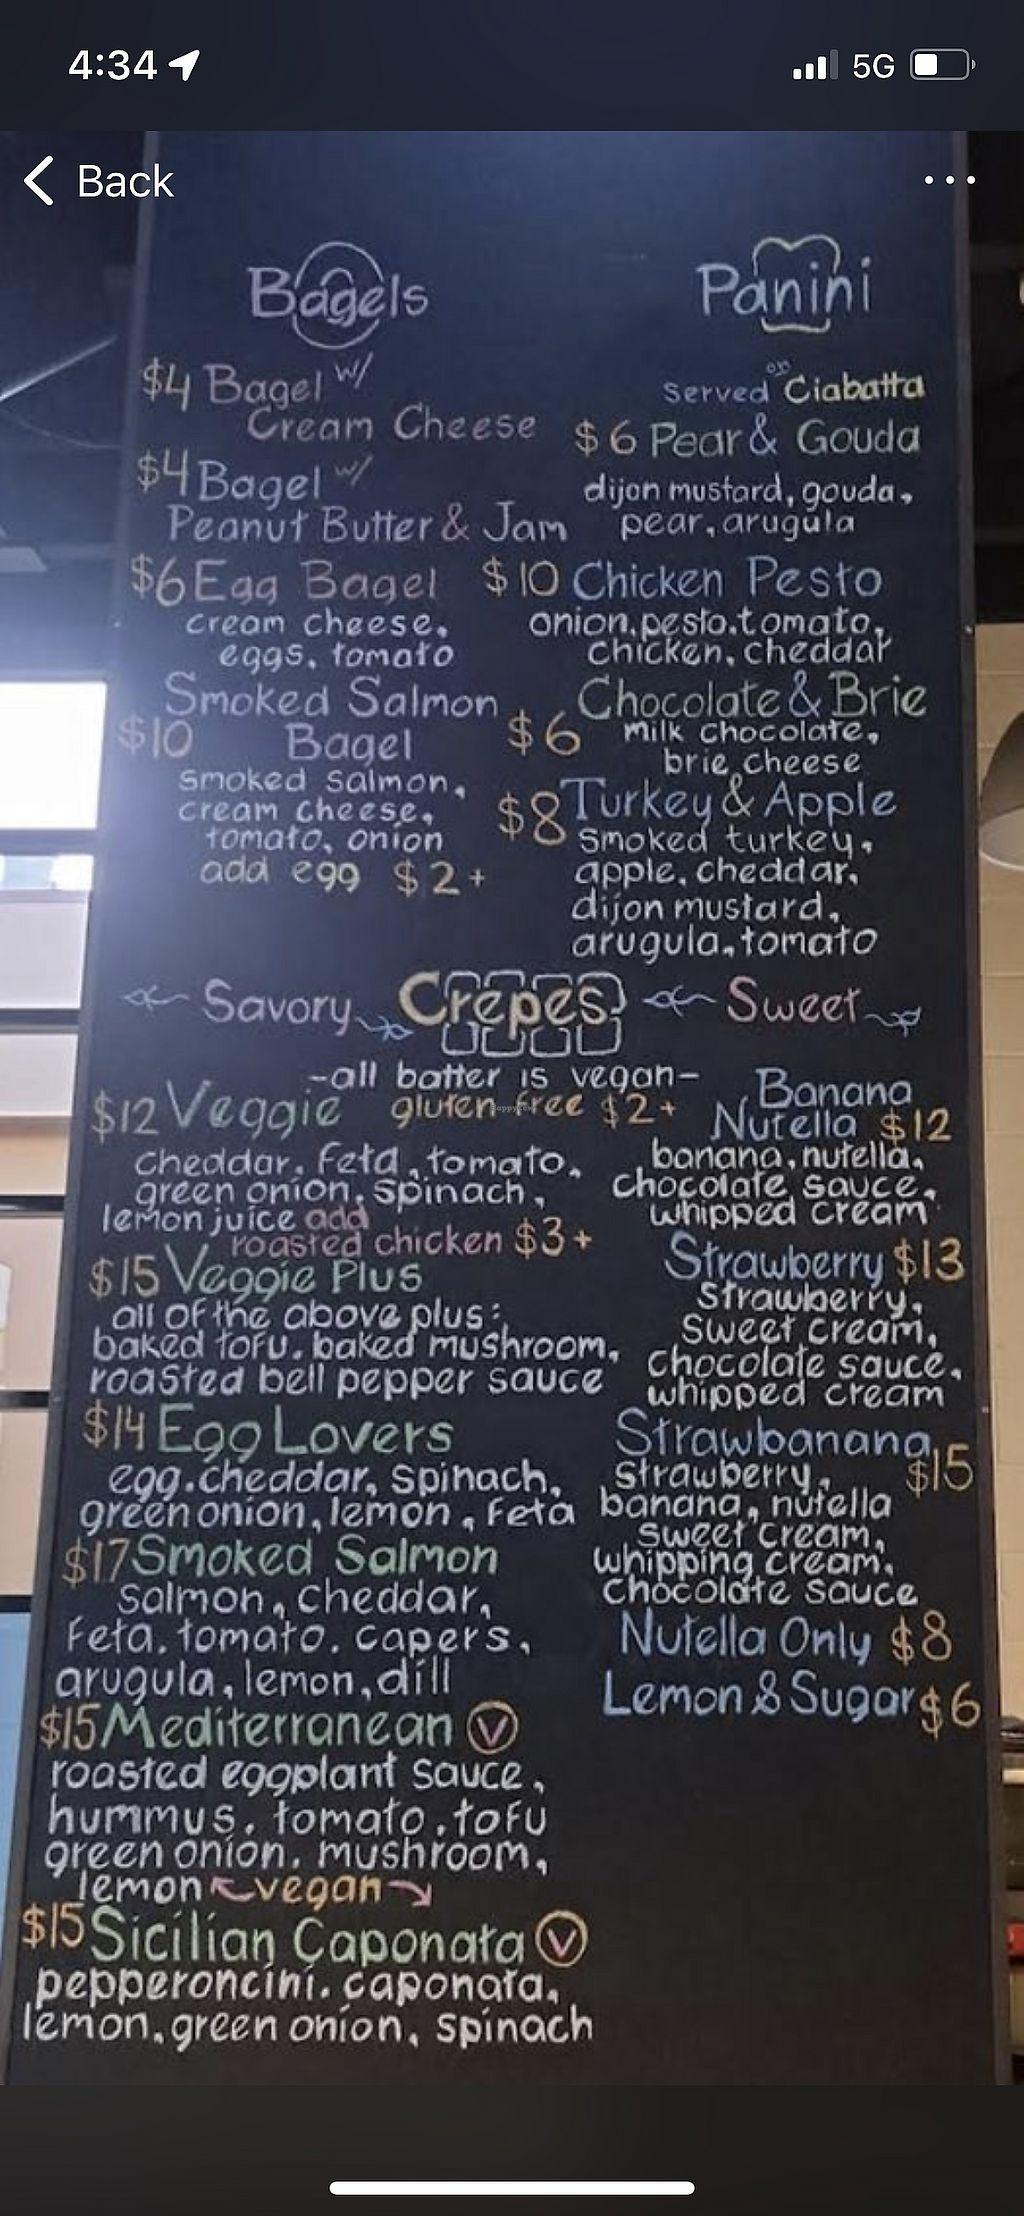 4:34
5G
Back
Bagels
$4 Bagel w/
Cream Cheese
$4 Bagel w/
Peanut Butter & Jam
$6 Egg Bagel
cream cheese,
eggs, tomato
Smoked Salmon
$10 Bagel
smoked salmon,
cream cheese,
tomato, onion
add egg $2+
Panini
Served on Ciabatta
$6 Pear & Gouda
dijon mustard, gouda,
pear, arugula
$10 Chicken Pesto
onion, pesto, tomato,
chicken, cheddar
Chocolate & Brie
$6 milk chocolate,
brie cheese
$8 Turkey & Apple
smoked turkey,
apple, cheddar,
dijon mustard,
arugula, tomato
Savory Crepes Sweet
-all batter is vegan-
gluten free $2+
$12 Veggie
cheddar, feta, tomato,
green onion, spinach,
lemon juice add
roasted chicken $3+
$15 Veggie Plus
all of the above plus:
baked tofu, baked mushroom,
roasted bell pepper sauce
$14 Egg Lovers
egg, cheddar, spinach,
green onion, lemon, feta
$17 Smoked Salmon
salmon, cheddar,
feta, tomato, capers,
arugula, lemon, dill
$15 Mediterranean V
roasted eggplant sauce,
hummus, tomato, tofu
green onion, mushroom,
lemon vegan
$15 Sicilian Caponata V
pepperoncini, caponata,
lemon, green onion, spinach
Banana
Nutella $12
banana, nutella,
chocolate sauce,
whipped cream
Strawberry $13
strawberry,
sweet cream,
chocolate sauce,
whipped cream
Strawbanana
strawberry, $15
banana, nutella
sweet cream,
whipping cream,
chocolate sauce
Nutella Only $8
Lemon & Sugar $6